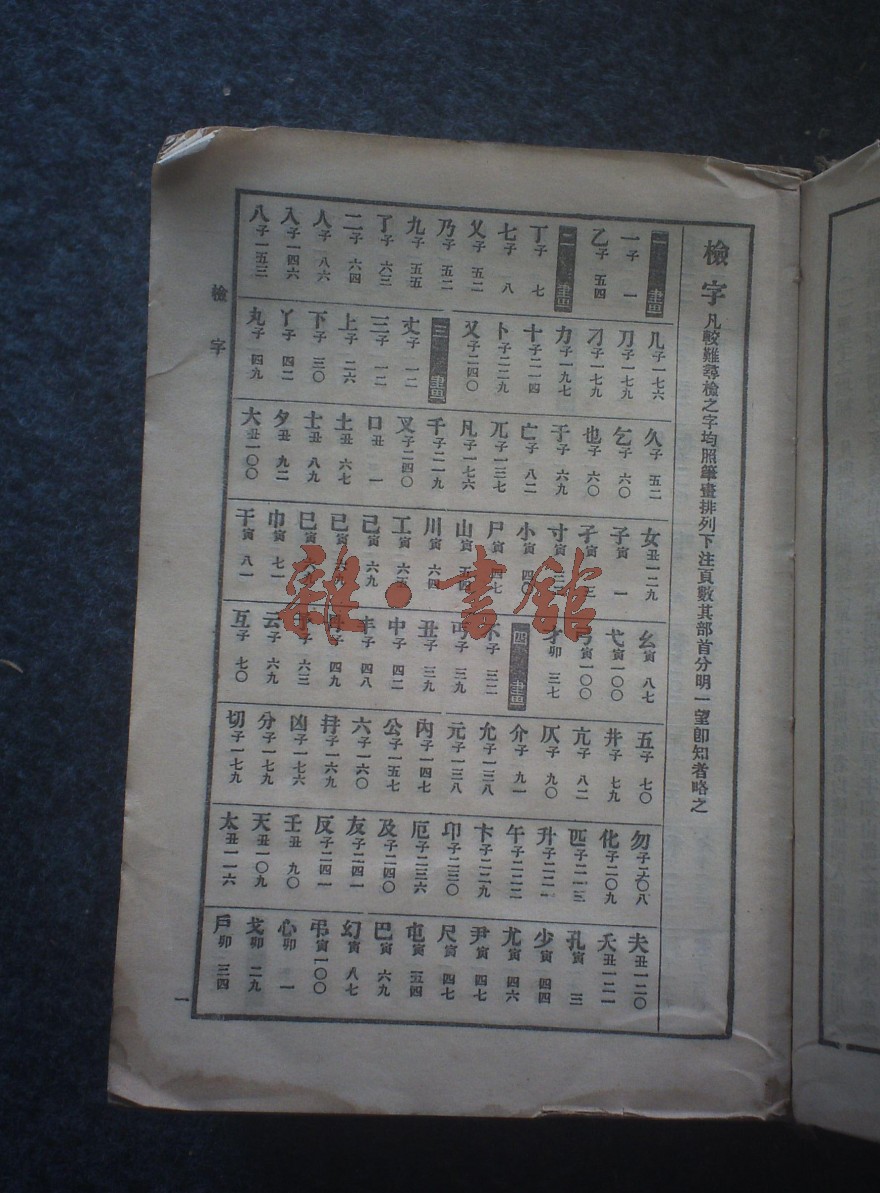 檢字 凡較難尋檢之字均照筆畫排列下注頁數其部首分明一望卽知者略之
一畫
一子 一
乙子 五四
二畫
丁子 七
七子 八
乂子 五二
乃子 五二
九子 五五
了子 六三
二子 六四
人子 八六
入子一四六
八子一五三
几子一七六
刀子一七九
刁子一七九
力子一九七
十子二一四
卜子二二九
又子二四〇
三畫
丈子 一二
三子 一二
上子 二六
下子 三〇
丫子 四二
丸子 四九
久子 五二
乞子 六〇
也子 六〇
于子 六九
亡子 八二
兀子一三七
凡子一七六
千子二一九
叉子二四〇
口丑 一
土丑 六七
士丑 八九
夕丑 九二
大丑一〇〇
女丑一二九
子寅 一
孑寅 三
寸寅
小寅 四〇
尸寅 四七
山寅 五四
川寅 六四
工寅 六五
己寅 六九
已寅
巳寅
巾寅 七一
干寅 八一
幺寅 八七
弋寅一〇〇
弓寅一〇〇
才卯 三七
四畫
不子 三二
丏子 三九
丑子 三九
中子 四二
丰子 四八
丹子 四九
予子 六三
云子 六九
互子 七〇
五子 七〇
井子 七九
亢子 八二
仄子 九〇
介子 九一
允子一三八
元子一三八
內子一四七
公子一五七
六子一六〇
冄子一六九
凶子一七六
分子一七九
切子一七九
勿子二〇八
化子二〇九
匹子二一三
升子二二一
午子二二二
卞子二二九
卬子二三〇
厄子二三六
及子二四〇
友子二四一
反子二四一
壬丑 九〇
天丑一〇九
太丑一一六
夫丑一二〇
夭丑一二一
孔寅 三
少寅 四四
尤寅 四六
尹寅 四七
尺寅 四七
屯寅 五四
巴寅 六九
幻寅 八七
弔寅一〇〇
心卯 一
戈卯 二九
戶卯 三四
檢字
一
雜·書館